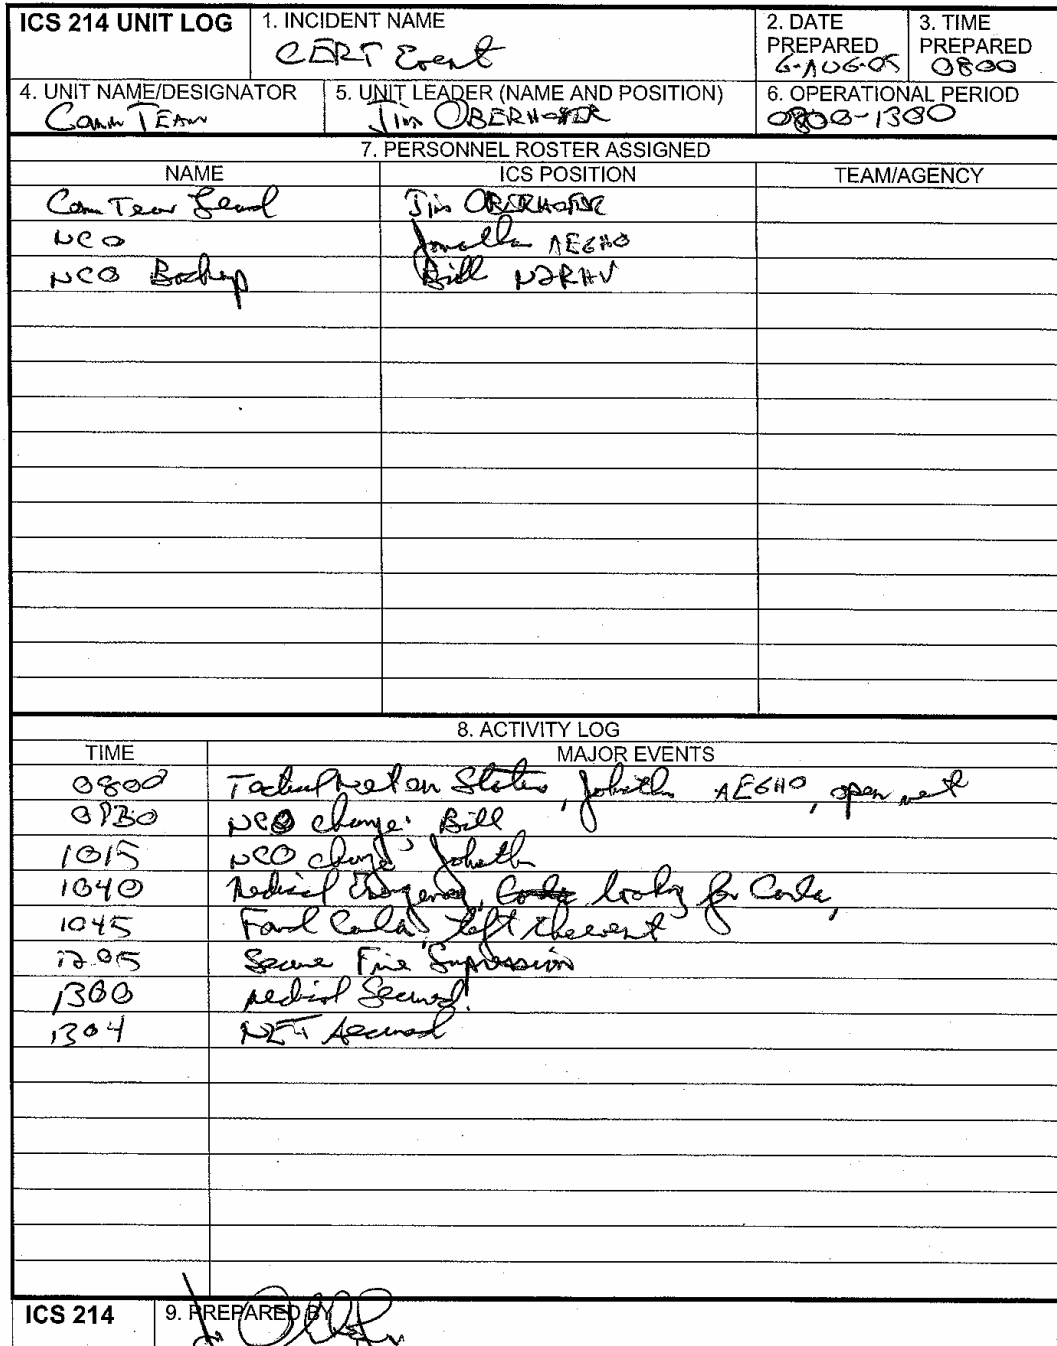 ICS 214 UNIT LOG
1. INCIDENT NAME
CERT Event
2. DATE PREPARED
6-AUG-05
3. TIME PREPARED
0800
4. UNIT NAME/DESIGNATOR
Comm TEAM
5. UNIT LEADER (NAME AND POSITION)
Jim OBERHOFER
6. OPERATIONAL PERIOD
0800-1300
7. PERSONNEL ROSTER ASSIGNED
NAME ICS POSITION TEAM/AGENCY
Com Team Lead Jim OBERHOFER
NCO Jonathan AE6HO
NCO Backup Bill N2RHV
8. ACTIVITY LOG
TIME MAJOR EVENTS
0800 Tactical Net on Station, AE6HO, open net
NCO change: Bill
1015 NCO change
1040 Medical Emergency, looking for Carla,
1045 Found Carla, left the event
1205 Secure Fire Supression
1300 Medical Secured!
1304 NET secured
ICS 214
9. PREPARED BY